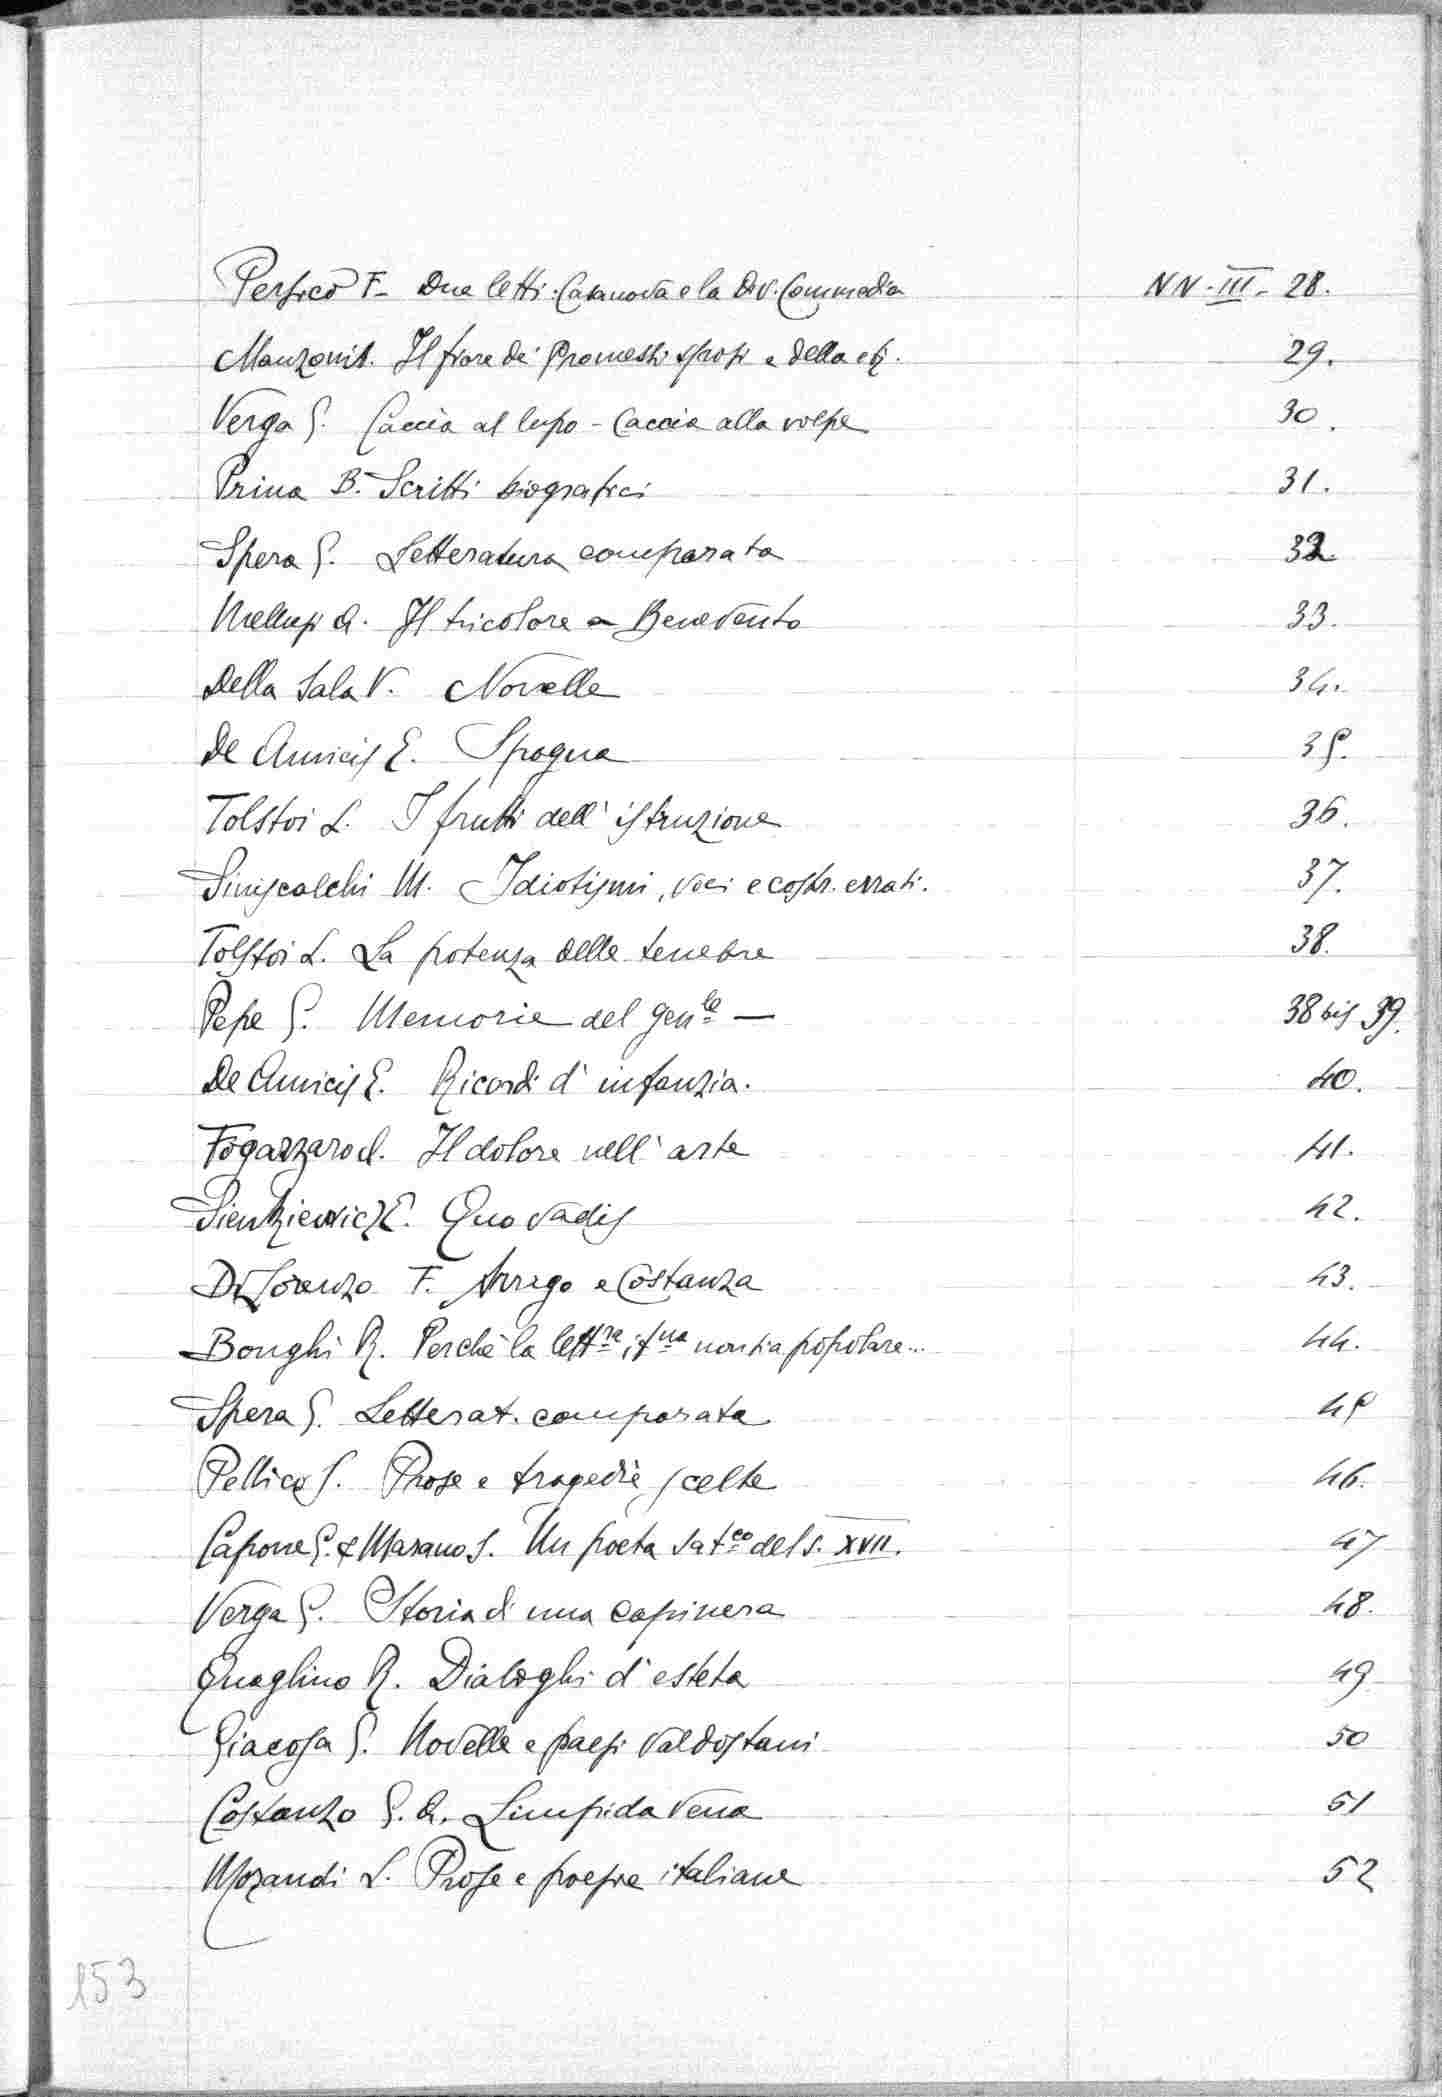 Persico F. - Due letti. Casanova e la Div. Commedia NN. III - 28.
Manzoni A. Il fiore dei Promessi sposi e della 29.
Verga G. Caccia al lupo - Caccia alla volpe 30.
Prina B. Scritti biografici 31.
Spera G. Letteratura comparata 32.
Mellusi A. Il tricolore a Benevento 33.
Della Sala V. Novelle 34.
De Amicis E. Spagna 35.
Tolstoi L. I frutti dell' istruzione 36.
Siniscalchi M. Idiotismi, voci e costr. errati. 37.
Tolstoi L. La potenza delle tenebre 38.
Pepe G. Memorie del gen.le — 38 bis 39.
De Amicis E. Ricordi d' infanzia. 40.
Fogazzaro A. Il dolore nell' arte 41.
Sienkievicz E. Quo vadis 42.
Di Lorenzo F. Arrigo e Costanza 43.
Bonghi R. Perchè la lett.ra it.na non sia popolare... 44.
Spera G. Letterat. comparata 45
Pellico S. Prose e tragedie scelte 46.
Capone G. & Marano S. Un poeta sat.co del s. XVII. 47
Verga G. Storia di una capinera 48.
Quaglino R. Dialoghi d' esteta 49
Giacosa G. Novelle e paesi valdostani 50
Costanzo G. A. Limpida vena 51
Morandi L. Prose e poesie italiane 52
153